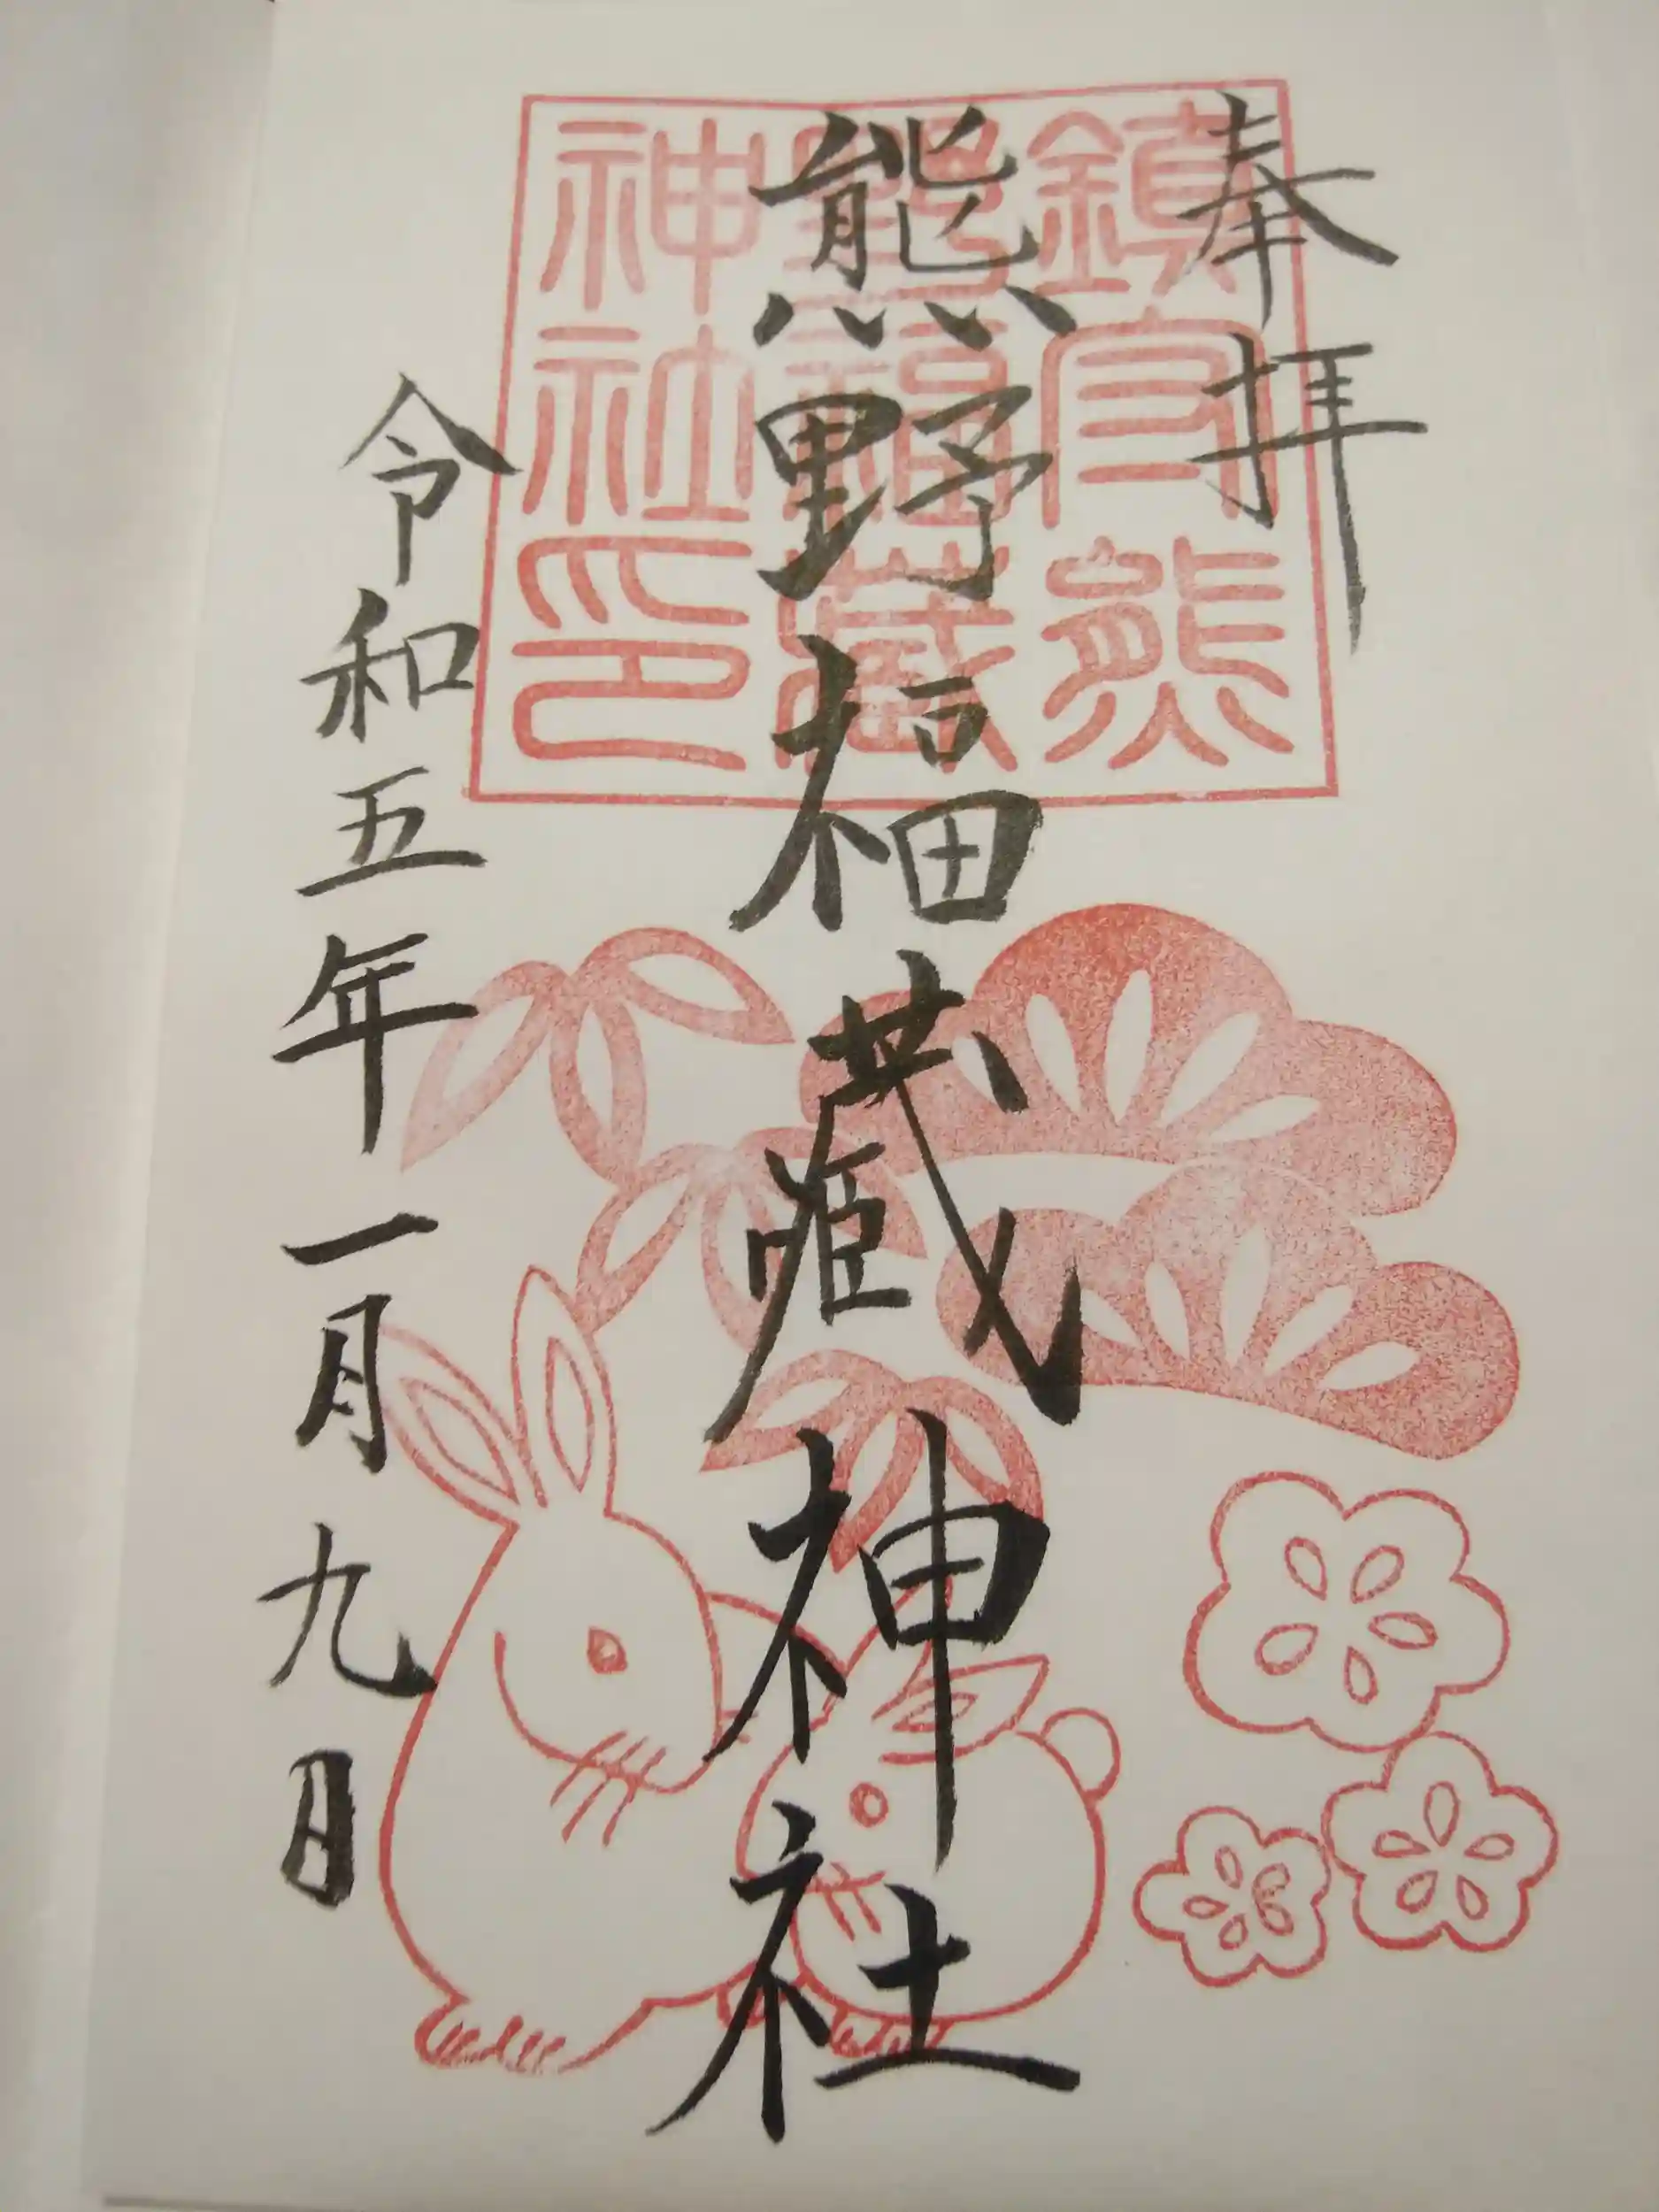 奉拝
熊野福藏神社
令和五年一月九日
鎮守熊
福藏
神社印